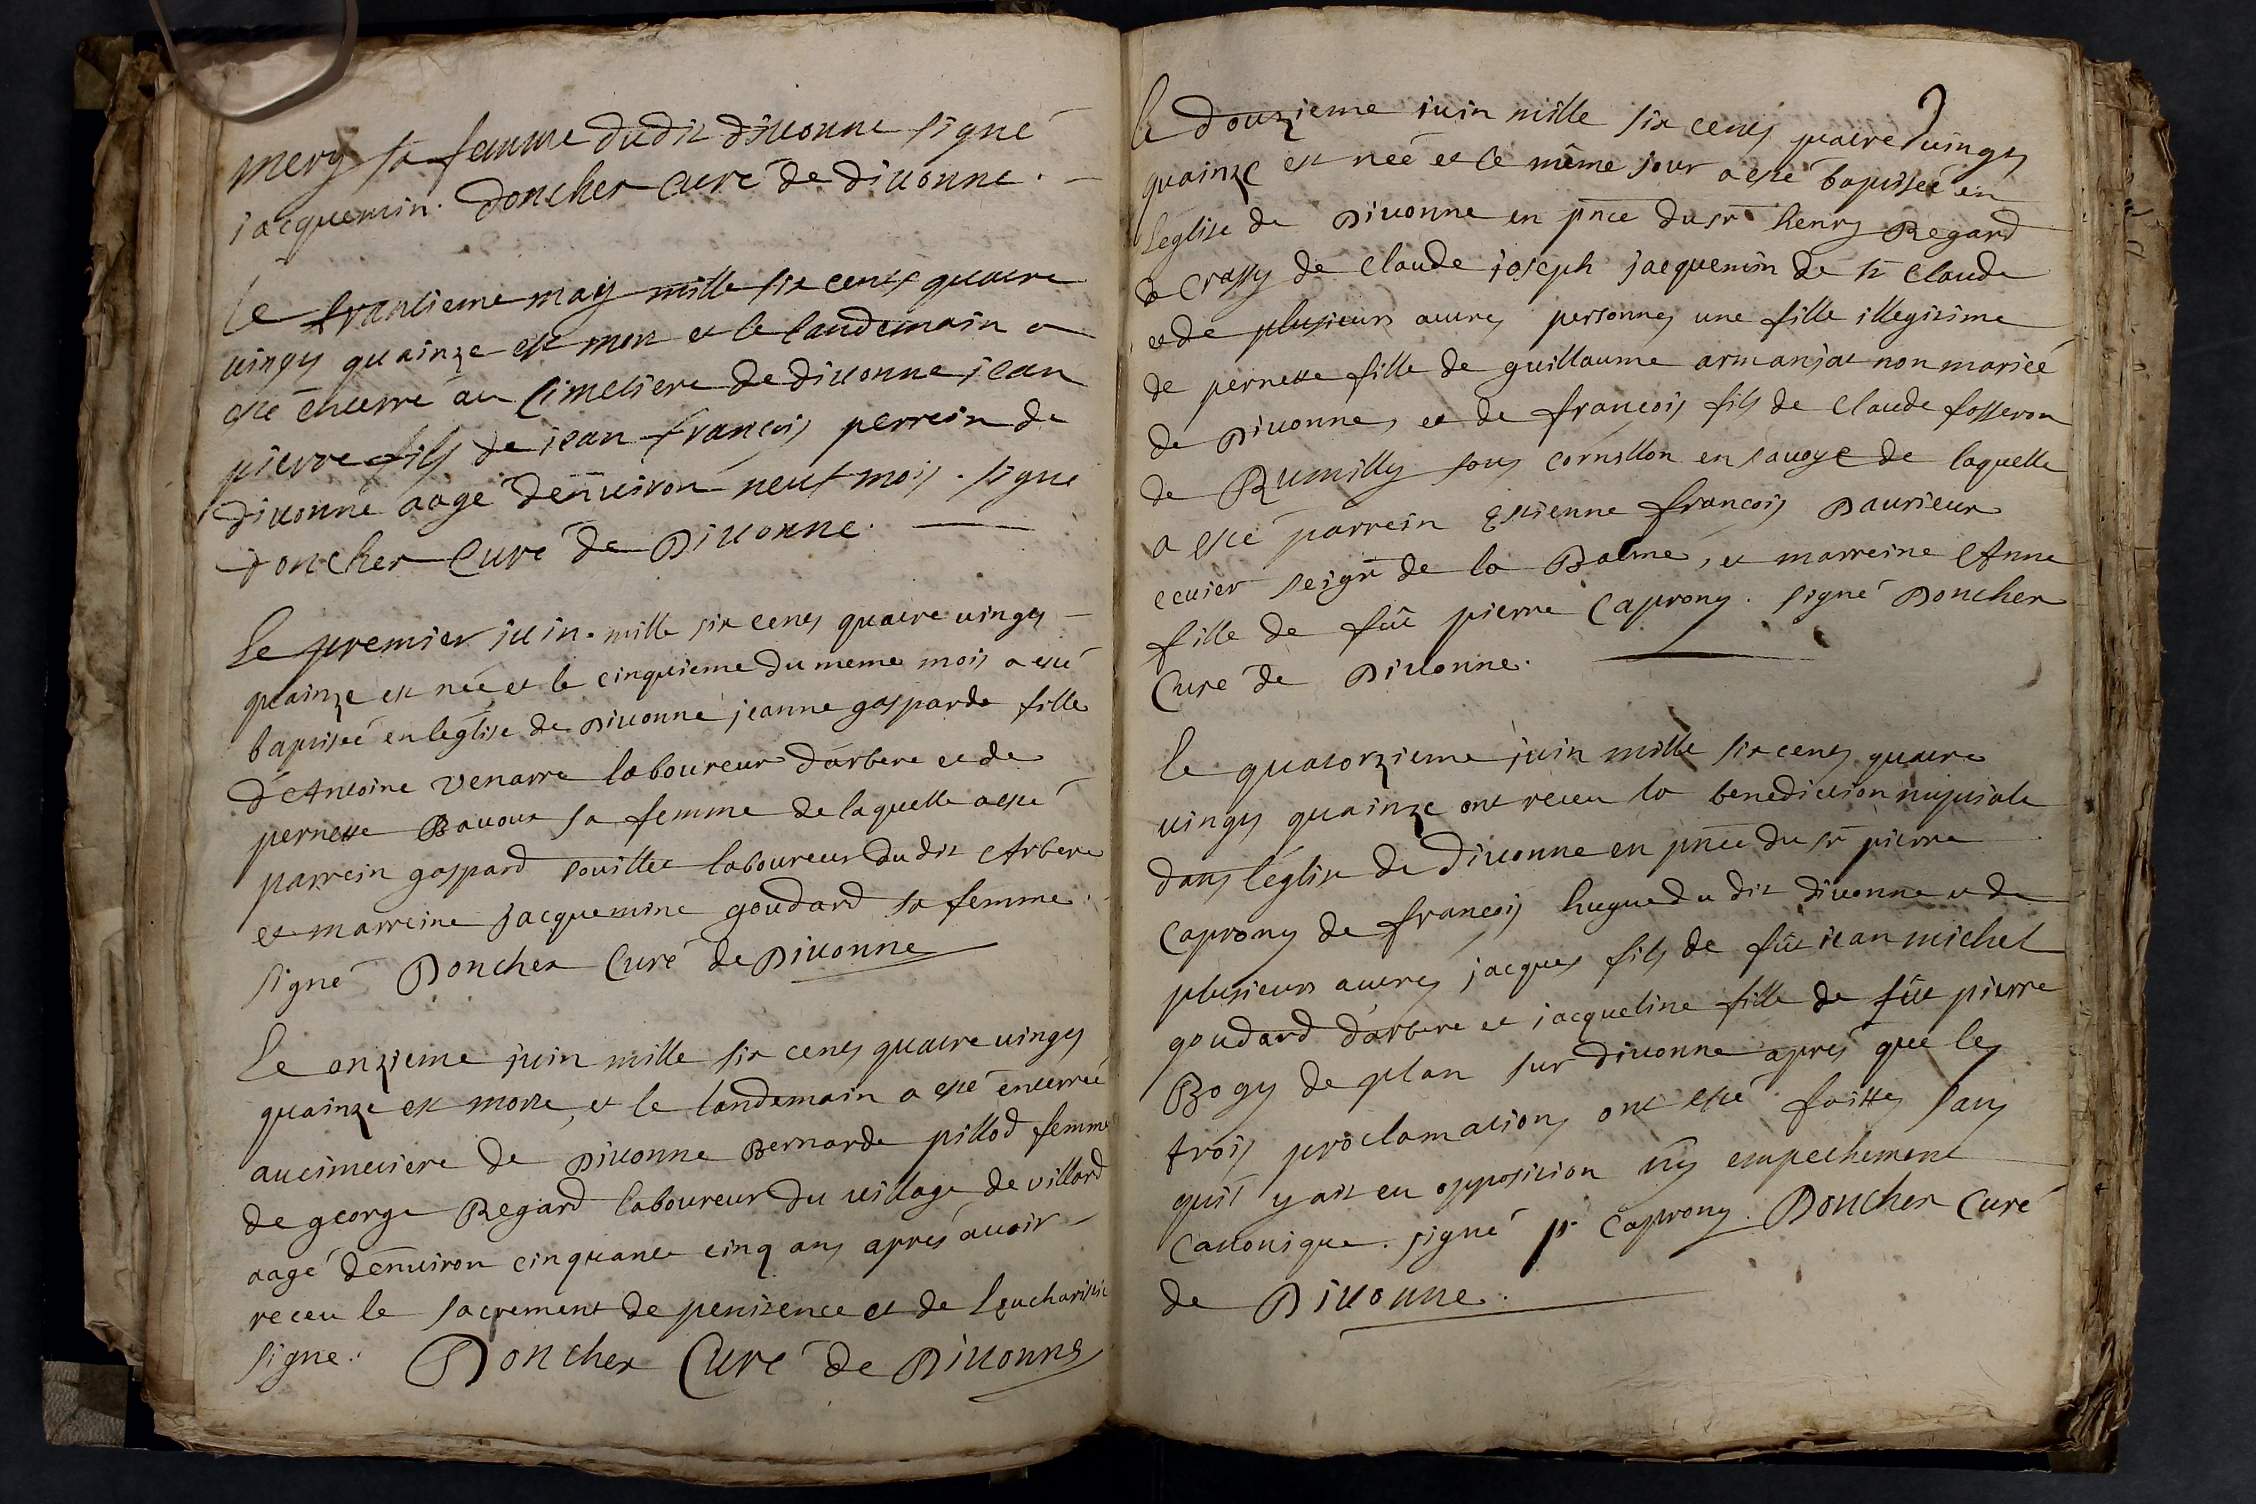 mery sa femme dudit divonne signé
jacquemin. Doncher curé de divonne.
Le trantieme may mille six cents quatre
vingts quainze est mort et le landemain a
esté enterré au cimetiere de divonne jean
pierre fils de jean françois perrein de
divonne aagé d'enuiron neuf mois. signé
Doncher Curé de Divonne.
Le premier juin mille six cents quatre vingts
quainze est néé et le cinquieme du meme mois a esté
baptiséé en l'eglise de Divonne jeanne gasparde fille
d'Antoine venarre laboureur d'arbere et de
pernette Bavoux sa femme de laquelle a esté
parrein gaspard souillet laboureur du dit Arbere
et marreine jacquemine goudard sa femme.
signé Doncher Curé de Divonne
Le onzieme juin mille six cents quatre vingts
quainze est morte, et le landemain a esté enterréé
au cimetiere de Divonne Bernarde pillod femme
de george Regard laboureur du village de villard
aagé d'enuiron cinquante cinq ans aprés auoir
receu le sacrement de penitence et de l'eucharistie
signe. Doncher Curé de Divonne
le douzieme juin mille six cents quatre vingts
quainze est néé et le même jour a esté baptiséé en
l'eglise de Divonne en pnce du sr henry Regard
d crassy de claude joseph jacquemin de st claude
et de plusieurs autres personnes une fille illegitime
de pernette fille de guillaume armanjat non mariéé
de Divonne, et de françois fils de claude fosseron
de Rumilly sous cornillon en savoye de laquelle
a esté parrein Estienne francois Daurieur
ecuier seigr de la Balme, et marreine Anne
fille de fût pierre Caprony. signé Doncher
Curé de Divonne.
le quatorzieme juin mille six cents quatre
vingts quainze ont receu la benediction nuptiale
dans l'église de divonne en pnce du sr pierre
Caprony de françois hugue du dit divonne et de
plusieurs autres jacques fils de fût jean michel
goudard d'arbere et jacqueline fille de fût pierre
Bogy de plan sur divonne aprés que les
trois proclamations ont esté faittes sans
quil y ait eu opposition ny empechement
canonique. signé pr Caprony. Doncher Curé
de Divonne.